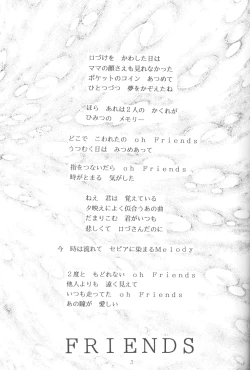 口づけを かわした日は
ママの顔さえも見れなかった
ポケットのコイン あつめて
ひとつづつ 夢をかぞえたね
ほら あれは2人の かくれが
ひみつの メモリー
どこで こわれたの oh Friends
うつむく日は みつめあって
指をつないだら oh Friends
時がとまる 気がした
ねえ 君は 覚えている
夕映えによく似合うあの曲
だまりこむ 君がいつも
悲しくて 口づさんだのに
今 時は流れて セピアに染まるMelody
2度と もどれない oh Friends
他人よりも 遠く見えて
いつも走ってた oh Friends
あの瞳が 愛しい
FRIENDS
3